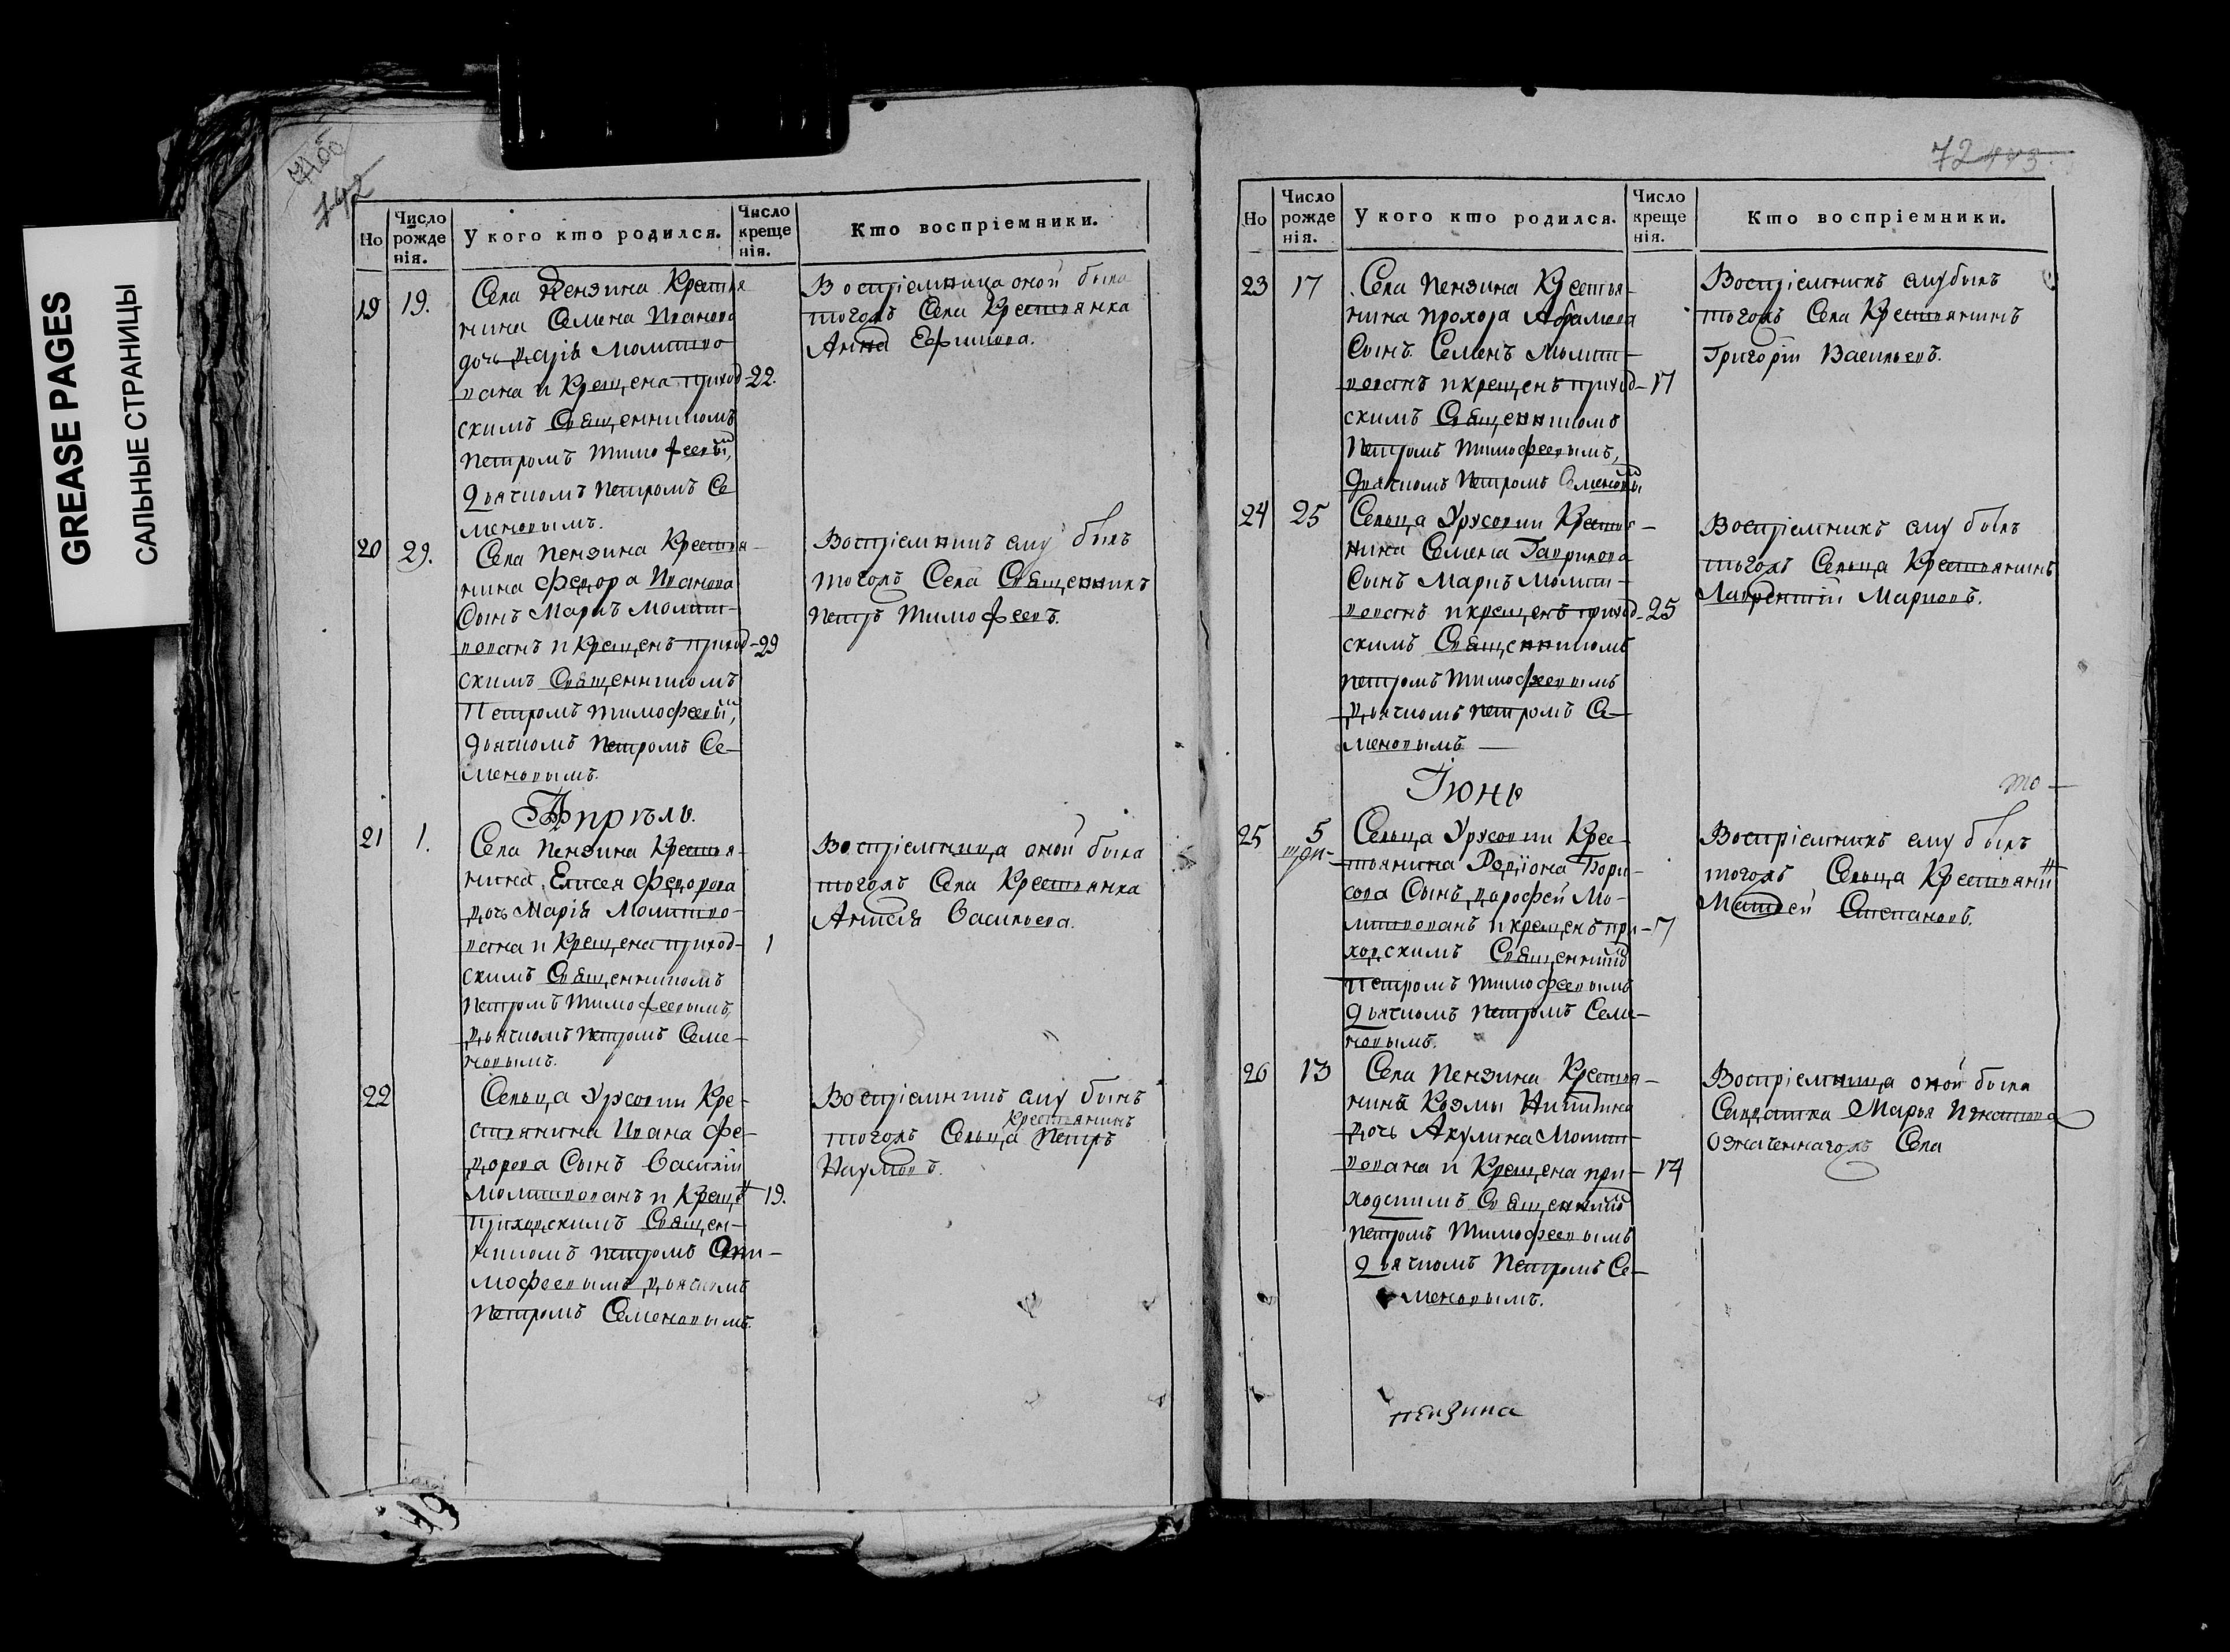 GREASE PAGES
САЛЬНЫЕ СТРАНИЦЫ
Но
Число рожде нія.
У кого кто родился.
Число креще нія.
Кто воспріемники.
19 19.
Села Пензина Крестья
нина Семена Иванова
дочь Дарія Молитво
вана и Крещена приход- 22.
скимъ Священникомъ
Петромъ Тимофеевы,
Дьячкомъ Петромъ Се
меновымъ.
Воспріемница оной была
тогожъ Села Крестьянка
Анна Ефимова.
20 29.
Села Пензина Крестья-
нина Федора Иванова
Сынъ Маркъ Молит-
вованъ и Крещенъ приход- 29
скимъ Священникомъ
Петромъ Тимофеевы,
Дьячкомъ Петромъ Се-
меновымъ.
Воспріемникъ ему былъ
тогожъ Села Священникъ
Петръ Тимофеевъ.
Апрель.
21 1.
Села Пензина Крестья-
нина Елисея Федорова
Дочь Марія Молитво-
вана и Крещена приход- 1
скимъ Священникомъ
Петромъ Тимофеевымъ,
Дьячкомъ Петромъ Семе-
новымъ.
Воспріемница оной была
тогожъ Села Крестьянка
Анисія Васильева.
22
Сельца Урусовки Кре-
стьянина Ивана Фе-
дорова Сынъ Василій
Молитвованъ и Креще 19.
приходскимъ Священ-
никомъ Петромъ Тим-
мофеевымъ, Дьячкомъ
Петромъ Семеновымъ.
Воспріемникъ ему былъ
крестьянинъ
тогожъ Сельца Петръ
Наумовъ.
72
Но
Число рожде нія.
У кого кто родился.
Число креще нія.
Кто воспріемники.
23 17
Села Пензина Крестья-
нина Прохора Абрамова
Сынъ Семенъ Молит-
вованъ и крещенъ приход- 17
скимъ Священникомъ
Петромъ Тимофеевымъ,
Дьячкомъ Петромъ Семеновы
Воспріемникъ ему былъ
тогожъ Села Крестьянинъ
Григорій Васильевъ.
24 25
Сельца Урусовки Крестья-
нина Семена Гаврилова
Сынъ Маркъ Молит-
вованъ и крещенъ приход- 25
скимъ Священникомъ
Петромъ Тимофеевымъ
Дьячкомъ Петромъ Се-
меновымъ
Воспріемникъ ему былъ
тогожъ Сельца Крестьянинъ
Лаврентій Марковъ.
Іюнь
то
25 5
Сельца Урусовки Крес-
тьянина Родіона Бори-
сова Сынъ Дорофей Мо-
литвованъ и крещенъ при- 7
ходскимъ Священнико
Петромъ Тимофеевымъ
Дьячкомъ Петромъ Семе-
новымъ.
Воспріемникъ ему былъ
тогожъ Сельца Крестьяни
Матвей Степановъ.
26 13
Села Пензина Крестья-
нина Козмы Никитина
Дочь Акулина Молит-
вована и Крещена при- 14
ходскимъ Священнико
Петромъ Тимофеевымъ
Дьячкомъ Петромъ Се-
меновымъ.
Воспріемница оной была
Салдатка Марья Игнатова
означеннагожъ Села
Пензина